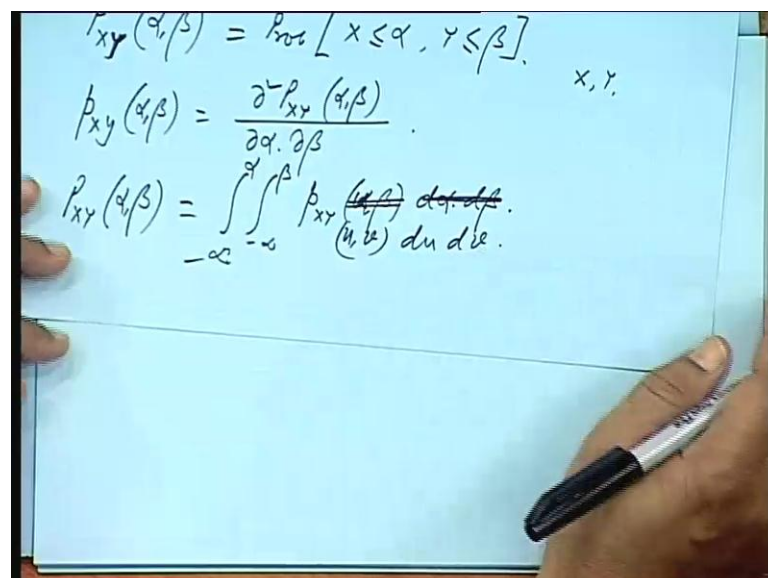 P_XY (α,β) = Prob [ X ≤ α , Y ≤ β ].
X, Y.
p_xy (α,β) = ∂² P_XY (α,β) / ∂α . ∂β .
P_XY (α,β) = ∫_{-∞}^{α} ∫_{-∞}^{β} p_XY ~~(α,β)~~ ~~dα . dβ~~ .
(u, v) du dv .